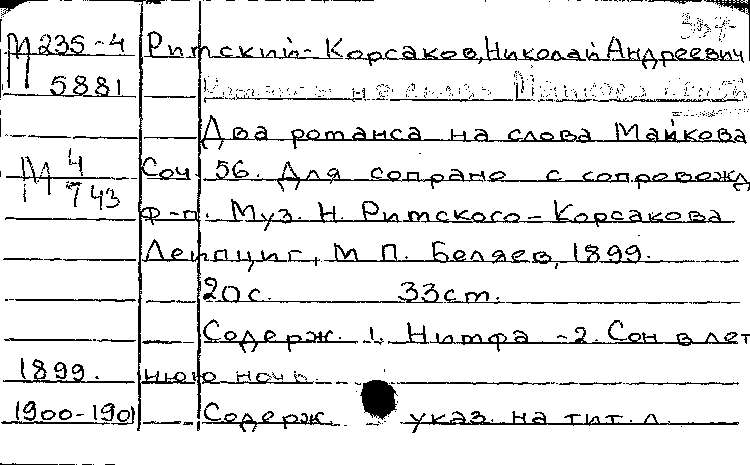 307
М 235-4 Римский-Корсаков, Николай Андреевич
5881 Романсы на слова Майкова Соч. 56
Два романса на слова Майкова
М 4 Соч. 56. Для сопрано с сопровожд
743 ф-п. Муз. Н. Римского-Корсакова
Лейпциг, М. П. Беляев, 1899.
20 с. 33 cm.
Содерж. 1. Нимфа -2. Сон в лет
1899. нюю ночь
1900-1901 Содерж. указ. на тит. л